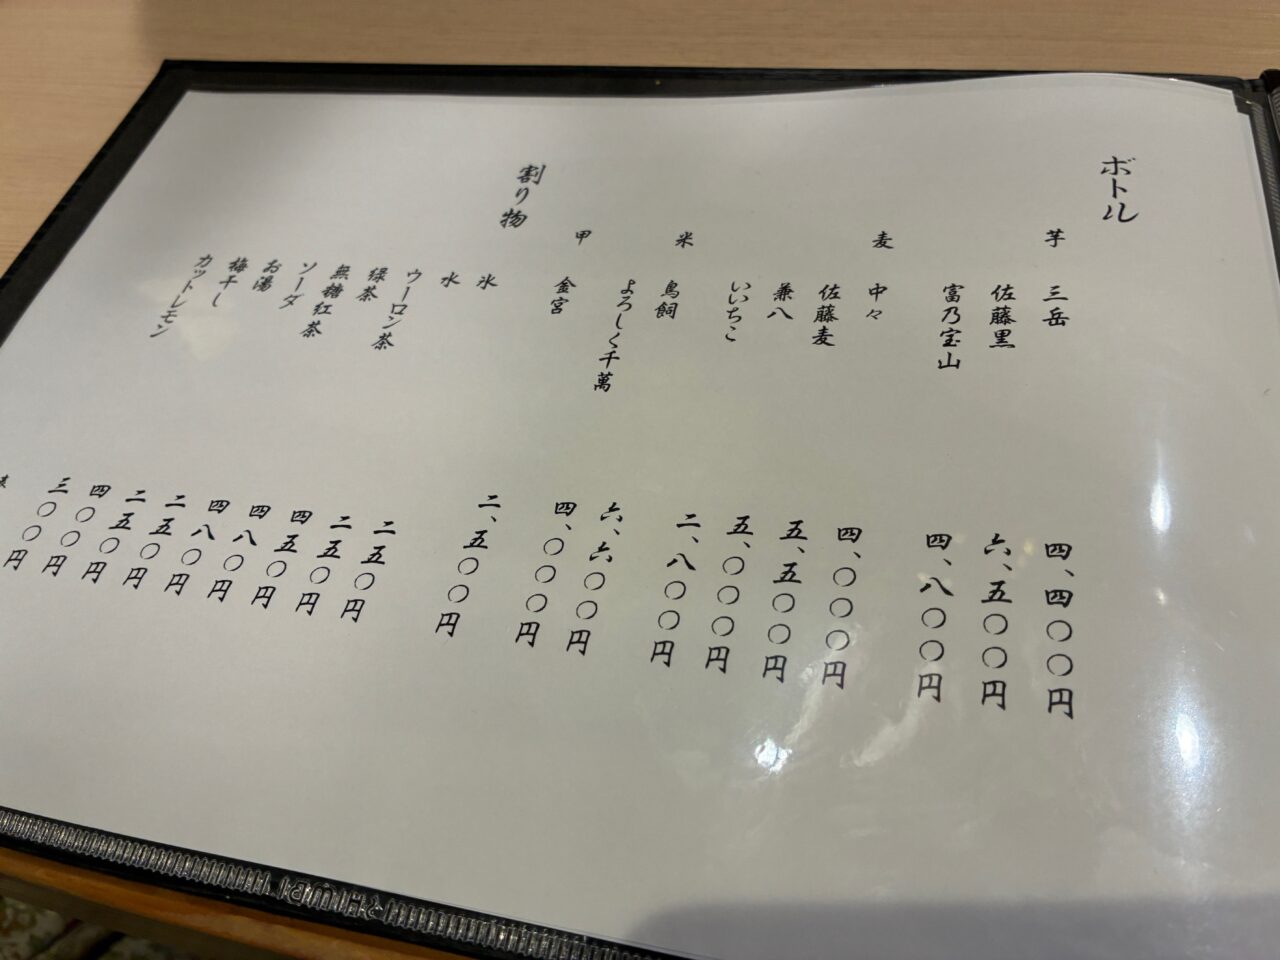 ボトル
芋 三岳 四、四〇〇円
佐藤黒 六、五〇〇円
富乃宝山 四、八〇〇円
麦 中々 四、〇〇〇円
佐藤麦 五、五〇〇円
兼八 五、〇〇〇円
いいちこ 二、八〇〇円
米 鳥飼 六、六〇〇円
よろしく千萬 四、〇〇〇円
甲 金宮 二、五〇〇円
割り物
氷 二五〇円
水 二五〇円
ウーロン茶 四五〇円
緑茶 四八〇円
無糖紅茶 四八〇円
ソーダ 二五〇円
お湯 二五〇円
梅干し 四〇〇円
カットレモン 三〇〇円